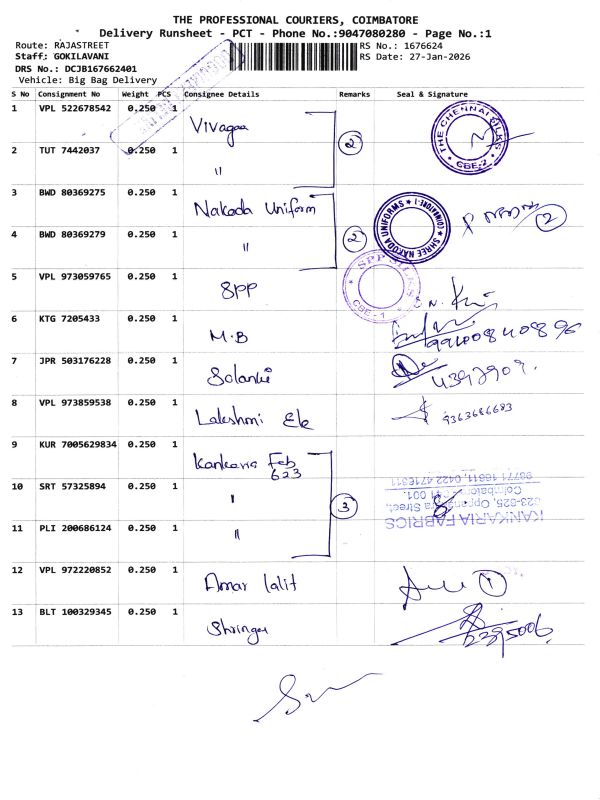 THE PROFESSIONAL COURIERS, COIMBATORE
Delivery Runsheet - PCT - Phone No.:9047080280 - Page No.:1
Route: RAJASTREET RS No.: 1676624
Staff: GOKILAVANI RS Date: 27-Jan-2026
DRS No.: DCJB167662401
Vehicle: Big Bag Delivery
S No Consignment No Weight PCS Consignee Details Remarks Seal & Signature
1 VPL 522678542 0.250 1 Vivagaa 2 THE CHENNAI SILKS CBE-2
2 TUT 7442037 0.250 1 "
3 BWD 80369275 0.250 1 Nakoda Uniform 2 SHREE NAKODA UNIFORMS 2
4 BWD 80369279 0.250 1 "
5 VPL 973059765 0.250 1 SPP SPP SILKS CBE-1
6 KTG 7205433 0.250 1 M.B 9940084089
7 JPR 503176228 0.250 1 Solanki
8 VPL 973859538 0.250 1 Lakshmi Ele 9363686683
9 KUR 7005629834 0.250 1 Kankaria Feb
623
10 SRT 57325894 0.250 1 " 3
11 PLI 200686124 0.250 1 "
KANKARIA FABRICS
12 VPL 972220852 0.250 1 Amar lalit 1
13 BLT 100329345 0.250 1 Shringar